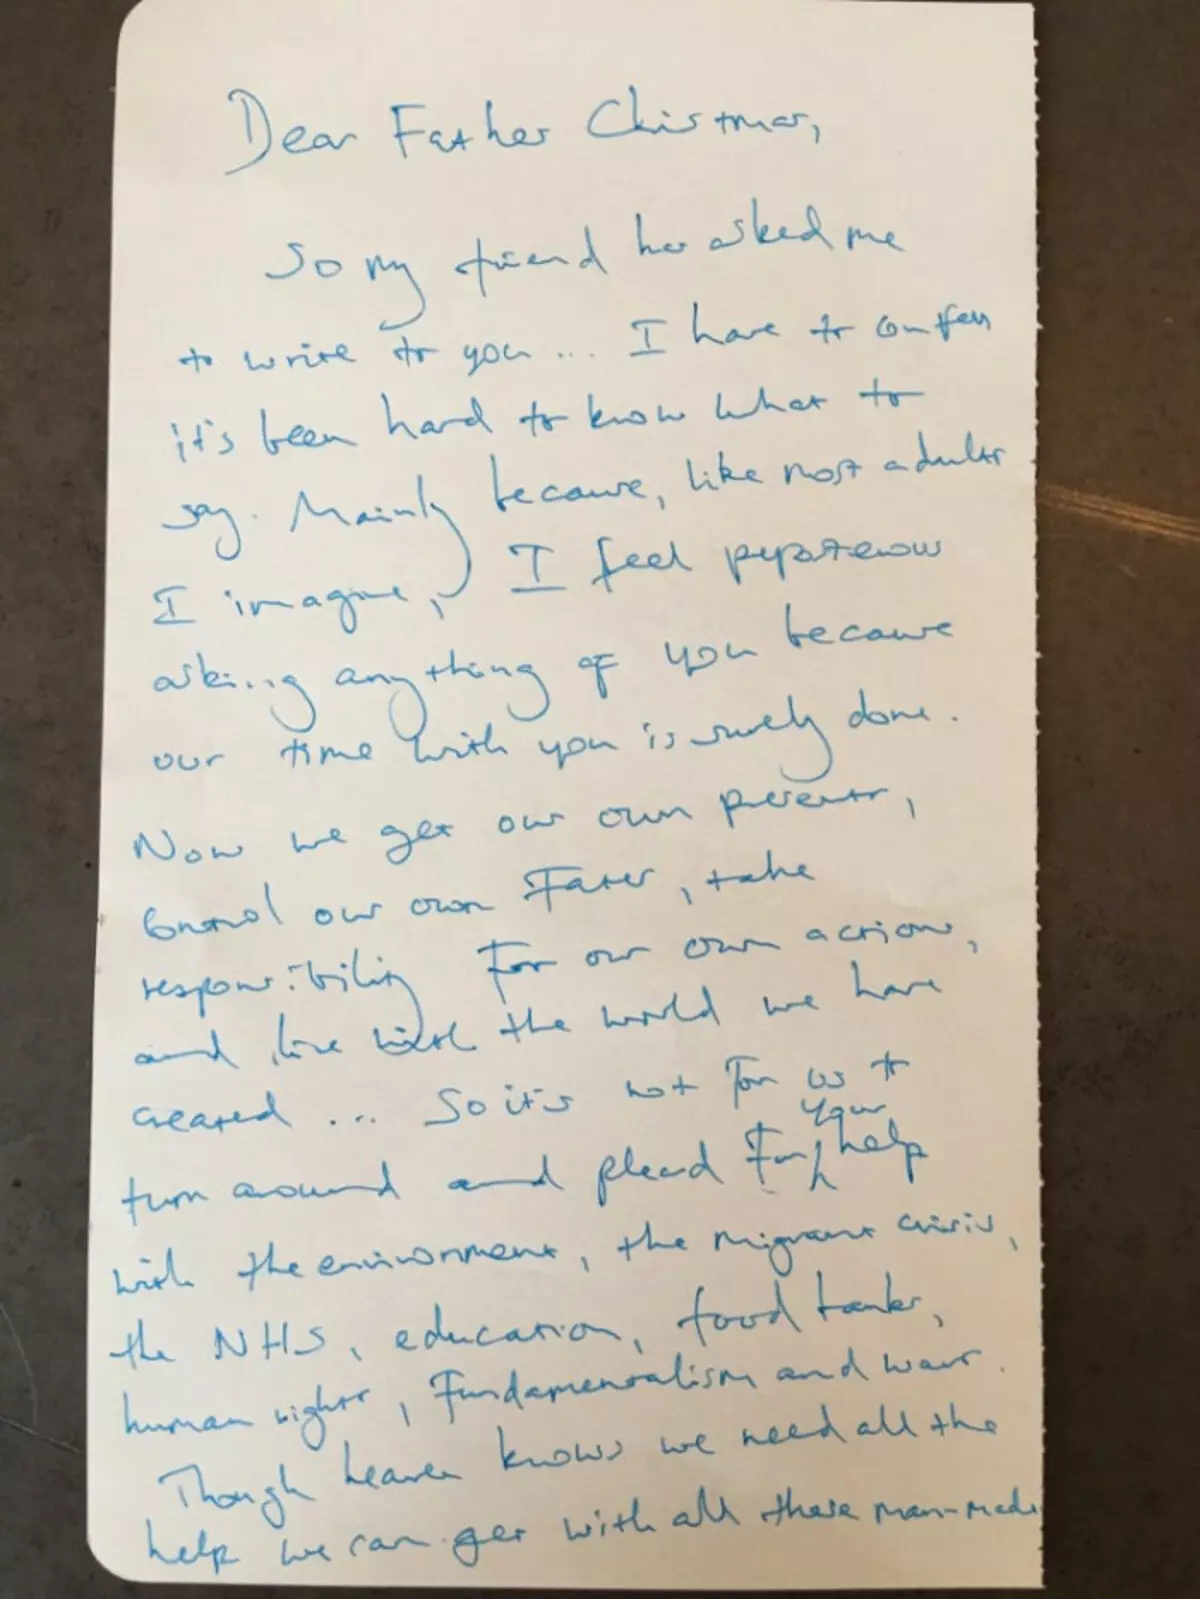 Dear Father Christmas,
So my friend has asked me
to write to you ... I have to confess
it's been hard to know what to
say. Mainly because, like most adults
I imagine, I feel preposterous
asking anything of you because
our time with you is surely done.
Now we get our own presents,
control our own Fates, take
responsibility For our own actions,
and live with the world we have
created ... So it's not For us to
turn around and plead For your help
with the environment, the migrant crisis,
the NHS, education, food banks,
human rights, Fundamentalism and war.
Though heaven knows we need all the
help we can get with all these man-made